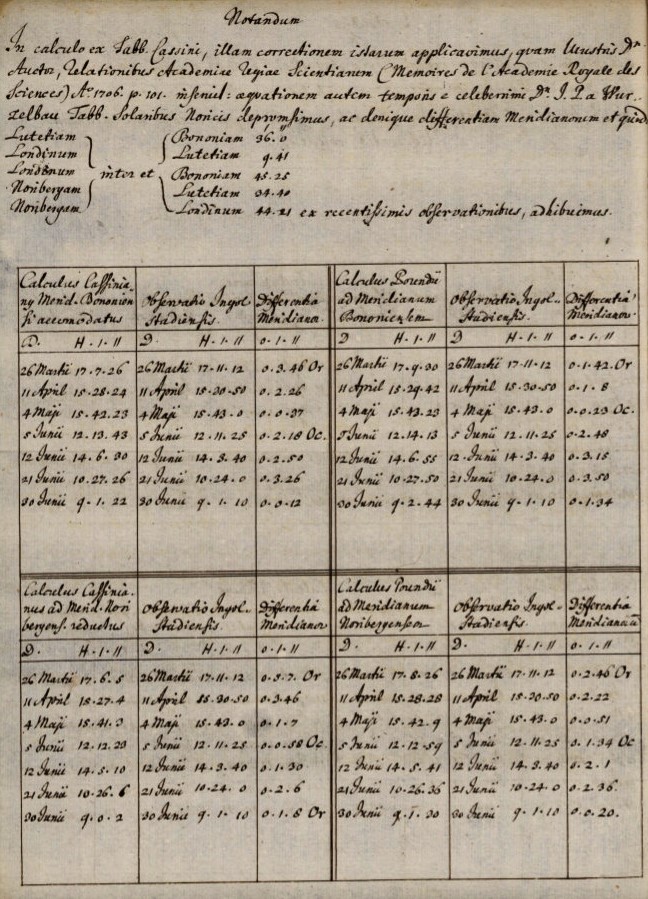 Notandum
In calculo ex Tabb. Cassini, illam correctionem istarum applicavimus, quam Illustris Dn.
Auctor, Relationibus Academiæ Regiæ Scientiarum (Memoires de l'Academie Royale des
Sciences) Ao 1706. p. 101. inseruit: æquationem autem temporis è celeberrimi Dn. J. P. a Wur-
zelbau Tabb. Solaribus Noricis depromsimus, ac denique differentiam Meridianorum et quid.
Lutetiam Bononiam 36. 0
Londinum Lutetiam 9. 41
Londinum inter et Bononiam 45. 25
Noribergam Lutetiam 34. 40
Noribergam Londinum 44. 21 ex recentissimis observationibus, adhibuimus.
Calculus Cassinia- Calculus Poundii
nus Merid. Bononien Observatio Ingol- Differentia ad Meridianum Observatio Ingol- Differentia
si accomodatus Stadiensis. Meridianor. Bononiensem Stadiensis. Meridianor.
D. H. I. II D. H. I. II 0. I. II D H. I. II D. H. I. II 0. I. II
26 Martii 17. 7. 26 26 Martii 17. 11. 12 0. 3. 46 Or 26 Martii 17. 9. 30 26 Martii 17. 11. 12 0. 1. 42. Or
11 April 15. 28. 24 11 April 15. 30. 50 0. 2. 26 11 April 15. 29. 42 11 April 15. 30. 50 0. 1. 8
4 Maji 15. 42. 23 4 Maji 15. 43. 0 0. 0. 37 4 Maji 15. 43. 23 4 Maji 15. 43. 0 0. 0. 23 Oc.
5 Junii 12. 13. 43 5 Junii 12. 11. 25 0. 2. 18 Oc. 5 Junii 12. 14. 13 5 Junii 12. 11. 25 0. 2. 48
12 Junii 14. 6. 30 12 Junii 14. 3. 40 0. 2. 50 12 Junii 14. 6. 55 12 Junii 14. 3. 40 0. 3. 15
21 Junii 10. 27. 26 21 Junii 10. 24. 0 0. 3. 26 21 Junii 10. 27. 50 21 Junii 10. 24. 0 0. 3. 50
30 Junii 9. 1. 22 30 Junii 9. 1. 10 0. 0. 12 30 Junii 9. 2. 44 30 Junii 9. 1. 10 0. 1. 34
Calculus Cassinia- Calculus Poundii
nus ad Merid. Nori Observatio Ingol- Differentia ad Meridianum Observatio Ingol- Differentia
bergens. reductus Stadiensis. Meridianor Noribergensem Stadiensis. Meridianorum
D. H. I. II D. H. I. II 0. I. II D. H. I. II D. H. I. II 0. I. II
26 Martii 17. 6. 5 26 Martii 17. 11. 12 0. 5. 7. Or 26 Martii 17. 8. 26 26 Martii 17. 11. 12 0. 2. 46 Or
11 April 15. 27. 4 11 April 15. 30. 50 0. 3. 46 11 April 15. 28. 28 11 April 15. 30. 50 0. 2. 22
4 Maji 15. 41. 3 4 Maji 15. 43. 0 0. 1. 7 4 Maji 15. 42. 9 4 Maji 15. 43. 0 0. 0. 51
5 Junii 12. 12. 23 5 Junii 12. 11. 25 0. 0. 58 Oc. 5 Junii 12. 12. 59 5 Junii 12. 11. 25 0. 1. 34 Oc
12 Junii 14. 5. 10 12 Junii 14. 3. 40 0. 1. 30 12 Junii 14. 5. 41 12 Junii 14. 3. 40 0. 2. 1
21 Junii 10. 26. 6 21 Junii 10. 24. 0 0. 2. 6 21 Junii 10. 26. 36 21 Junii 10. 24. 0 0. 2. 36.
30 Junii 9. 0. 2 30 Junii 9. 1. 10 0. 1. 8 Or 30 Junii 9. 1. 30 30 Junii 9. 1. 10 0. 0. 20.